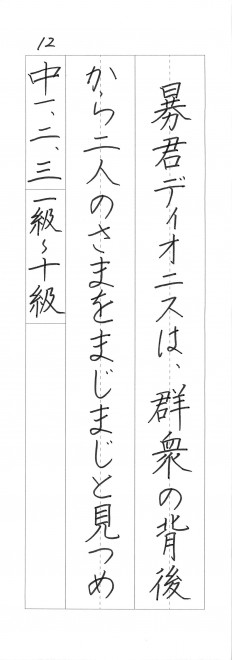 12
暴君ディオニスは、群衆の背後
から二人のさまをまじまじと見つめ
中一、二、三 一級〜十級